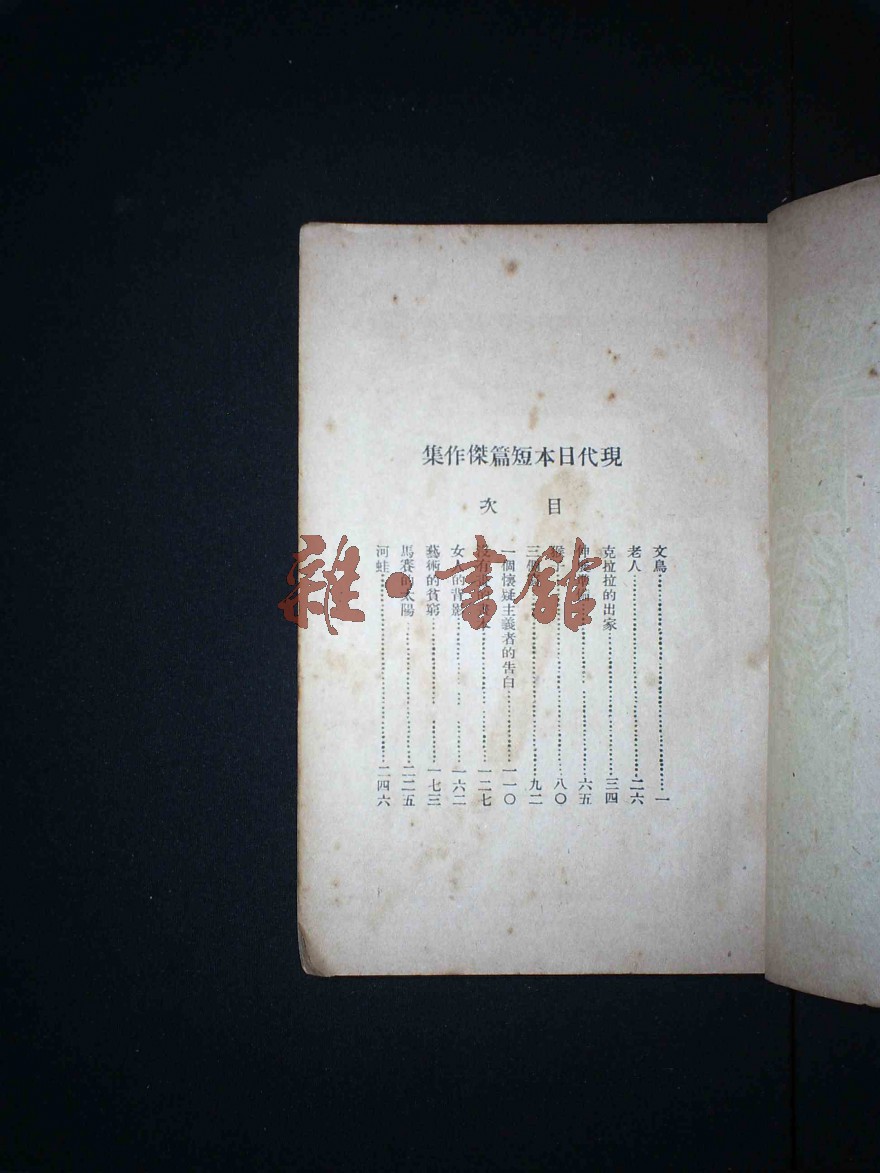 現代日本短篇傑作集
目次
文鳥……一
老人……二六
克拉拉的出家……三四
……六五
猴……八〇
三個……九二
一個懷疑主義者的告白……一一〇
……一二七
女人的背影……一六二
藝術的貧窮……一七三
馬賽的太陽……二二五
河蛙……二四六
雜·書館